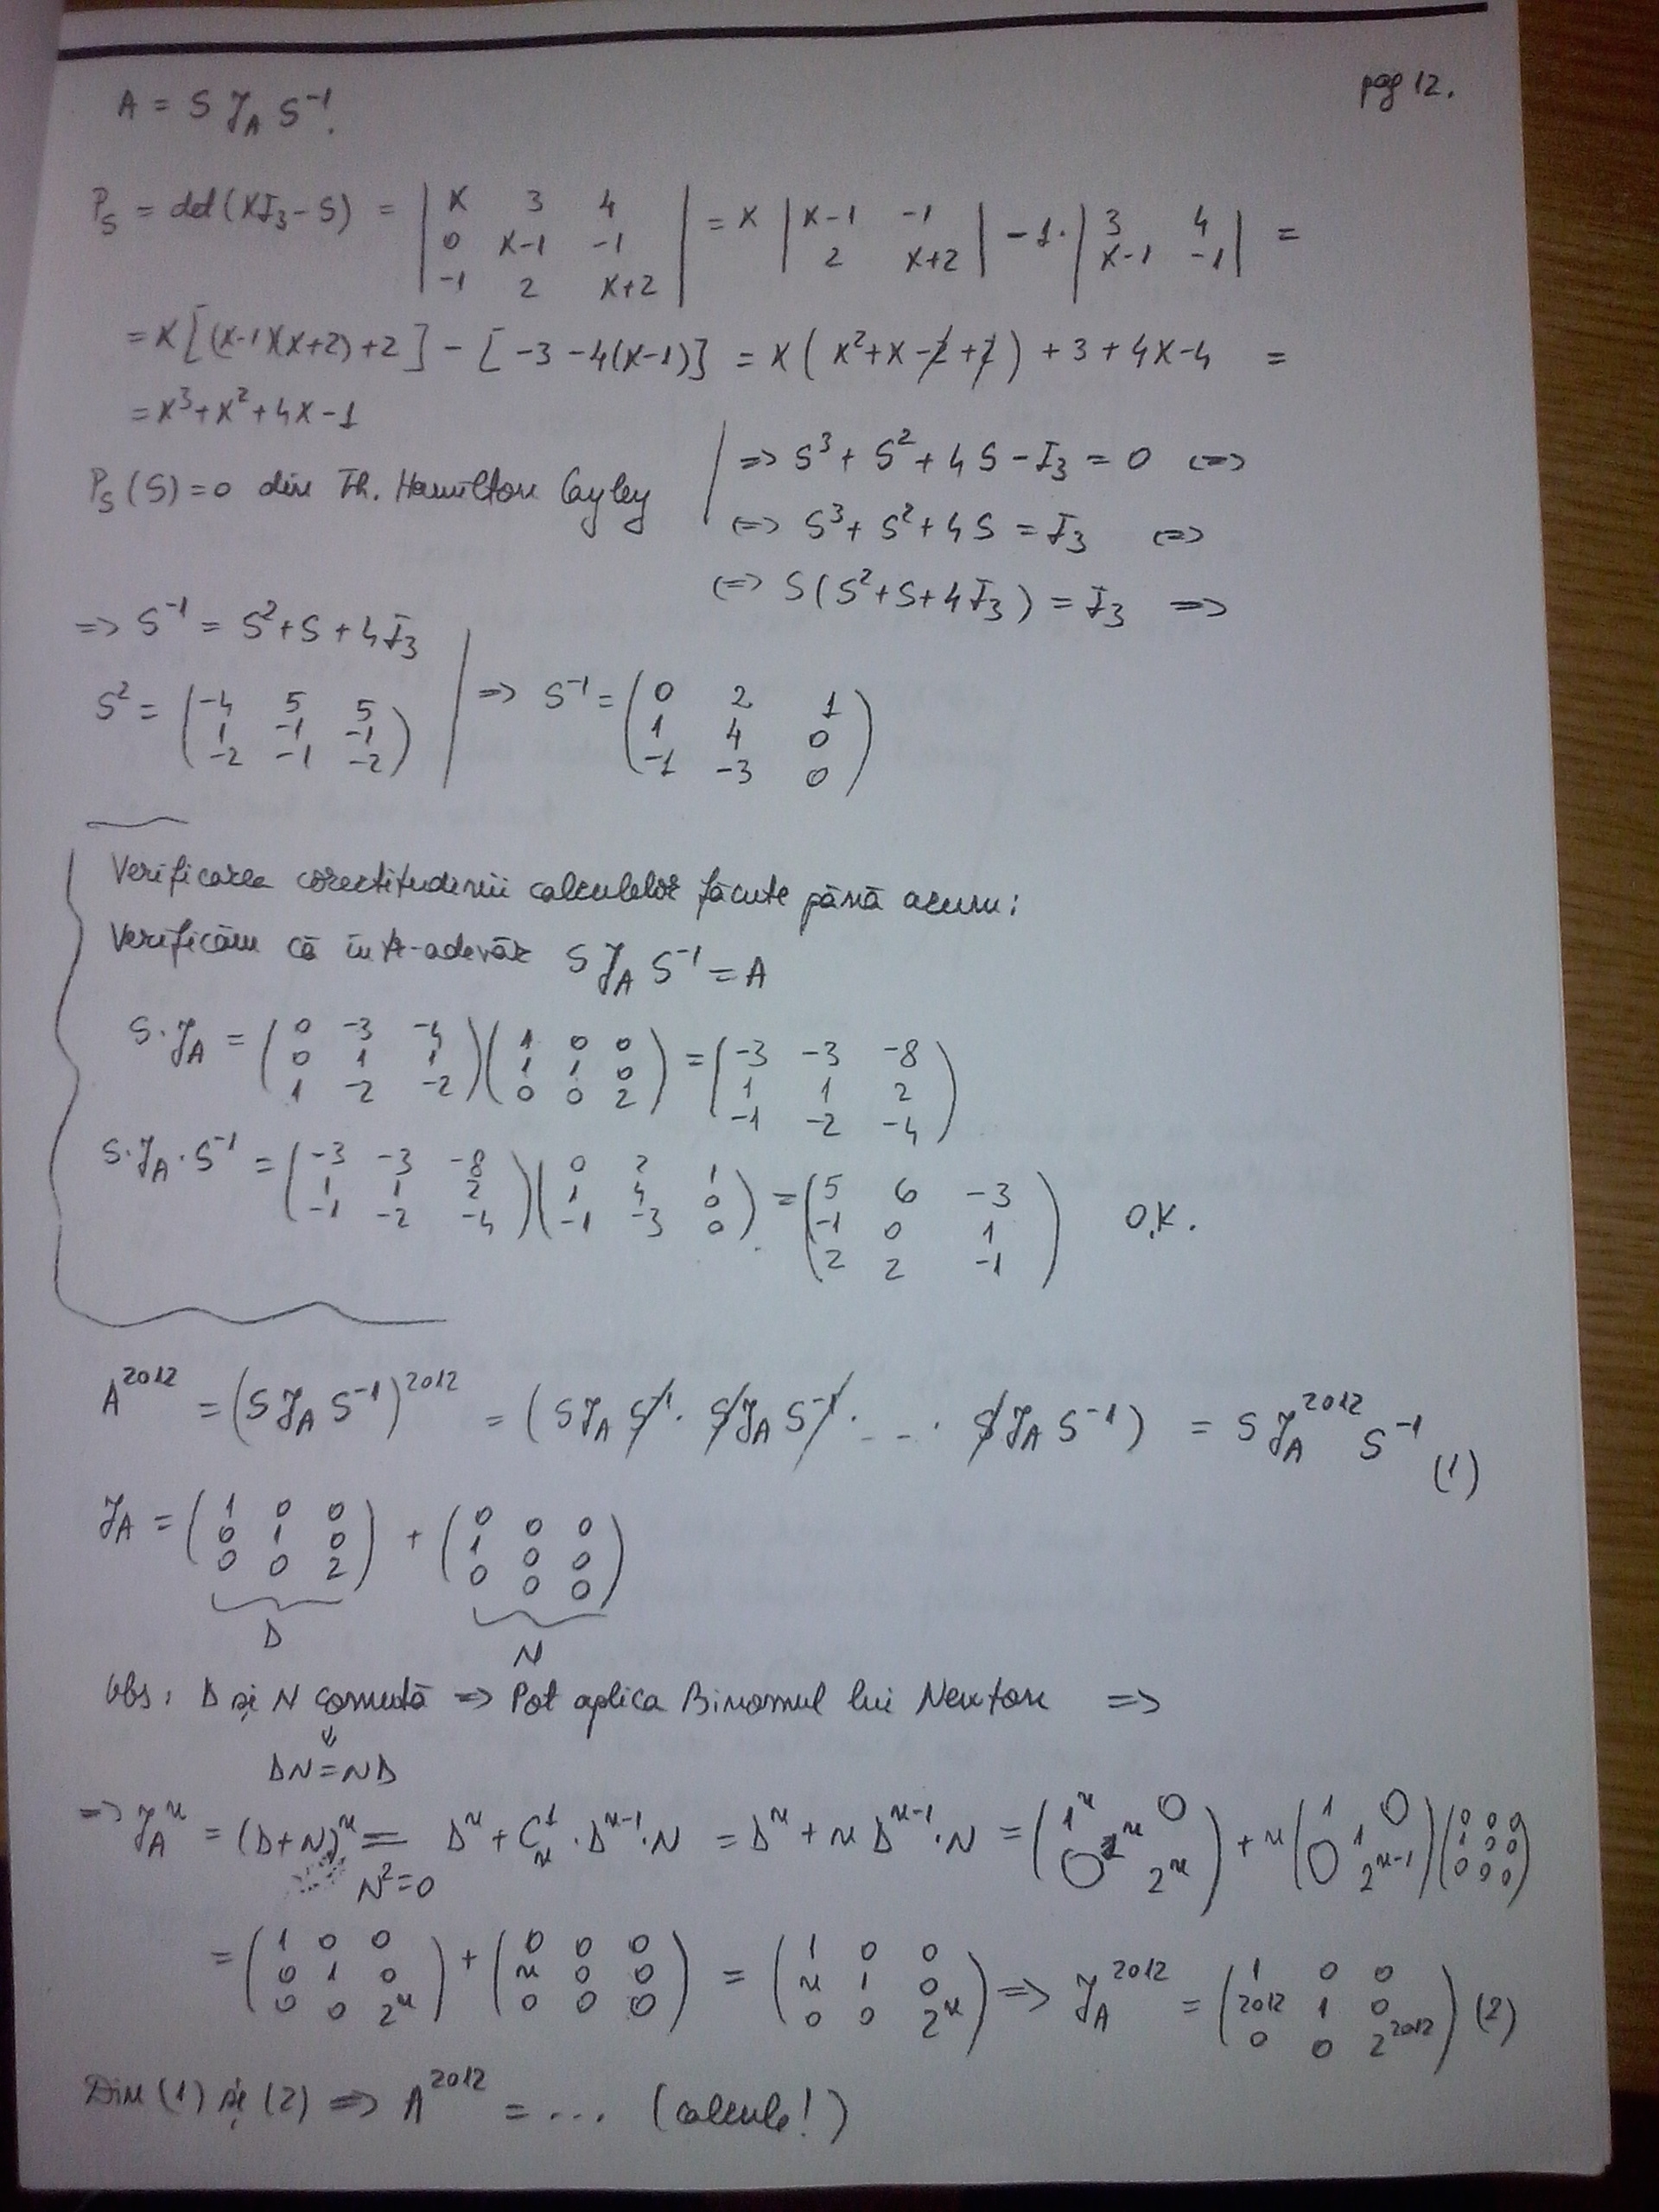 pag 12.
A = S J_A S^{-1}.
P_S = det(XI_3 - S) = | X 3 4 ; 0 X-1 -1 ; -1 2 X+2 | = X | X-1 -1 ; 2 X+2 | - 1· | 3 4 ; X-1 -1 | =
= X[(X-1)(X+2)+2] - [-3-4(X-1)] = X(X^2+X-2+2) + 3 + 4X-4 =
= X^3+X^2+4X-1
P_S(S)=0 din Th. Hamilton Cayley | => S^3 + S^2 + 4S - I_3 = 0 <=>
<=> S^3 + S^2 + 4S = I_3 <=>
<=> S(S^2+S+4I_3) = I_3 =>
=> S^{-1} = S^2+S+4I_3
S^2 = ( -4 5 5 ; 1 -1 -1 ; -2 -1 -2 ) | => S^{-1} = ( 0 2 1 ; 1 4 0 ; -1 -3 0 )
Verificarea corectitudinii calculelor făcute până acum:
Verificăm că într-adevăr S J_A S^{-1} = A
S·J_A = ( 0 -3 -4 ; 0 1 1 ; 1 -2 -2 )( 1 0 0 ; 1 1 0 ; 0 0 2 ) = ( -3 -3 -8 ; 1 1 2 ; -1 -2 -4 )
S·J_A·S^{-1} = ( -3 -3 -8 ; 1 1 2 ; -1 -2 -4 )( 0 2 1 ; 1 4 0 ; -1 -3 0 ) = ( 5 6 -3 ; -1 0 1 ; 2 2 -1 ) O.K.
A^{2012} = (S J_A S^{-1})^{2012} = (S J_A S^{-1} · S J_A S^{-1} · ... · S J_A S^{-1}) = S J_A^{2012} S^{-1} (1)
J_A = ( 1 0 0 ; 0 1 0 ; 0 0 2 ) + ( 0 0 0 ; 1 0 0 ; 0 0 0 )
D N
Obs: D și N comută => Pot aplica Binomul lui Newton =>
DN=ND
=> J_A^n = (D+N)^n = D^n + C_n^1 · D^{n-1} · N = D^n + n D^{n-1} · N = ( 1^n 0 ; 1^n ; 0 2^n ) + n ( 1 0 ; 1 ; 0 2^{n-1} )( 0 0 0 ; 1 0 0 ; 0 0 0 )
N^2=0
= ( 1 0 0 ; 0 1 0 ; 0 0 2^n ) + ( 0 0 0 ; n 0 0 ; 0 0 0 ) = ( 1 0 0 ; n 1 0 ; 0 0 2^n ) => J_A^{2012} = ( 1 0 0 ; 2012 1 0 ; 0 0 2^{2012} ) (2)
Din (1) și (2) => A^{2012} = ... (calcule!)